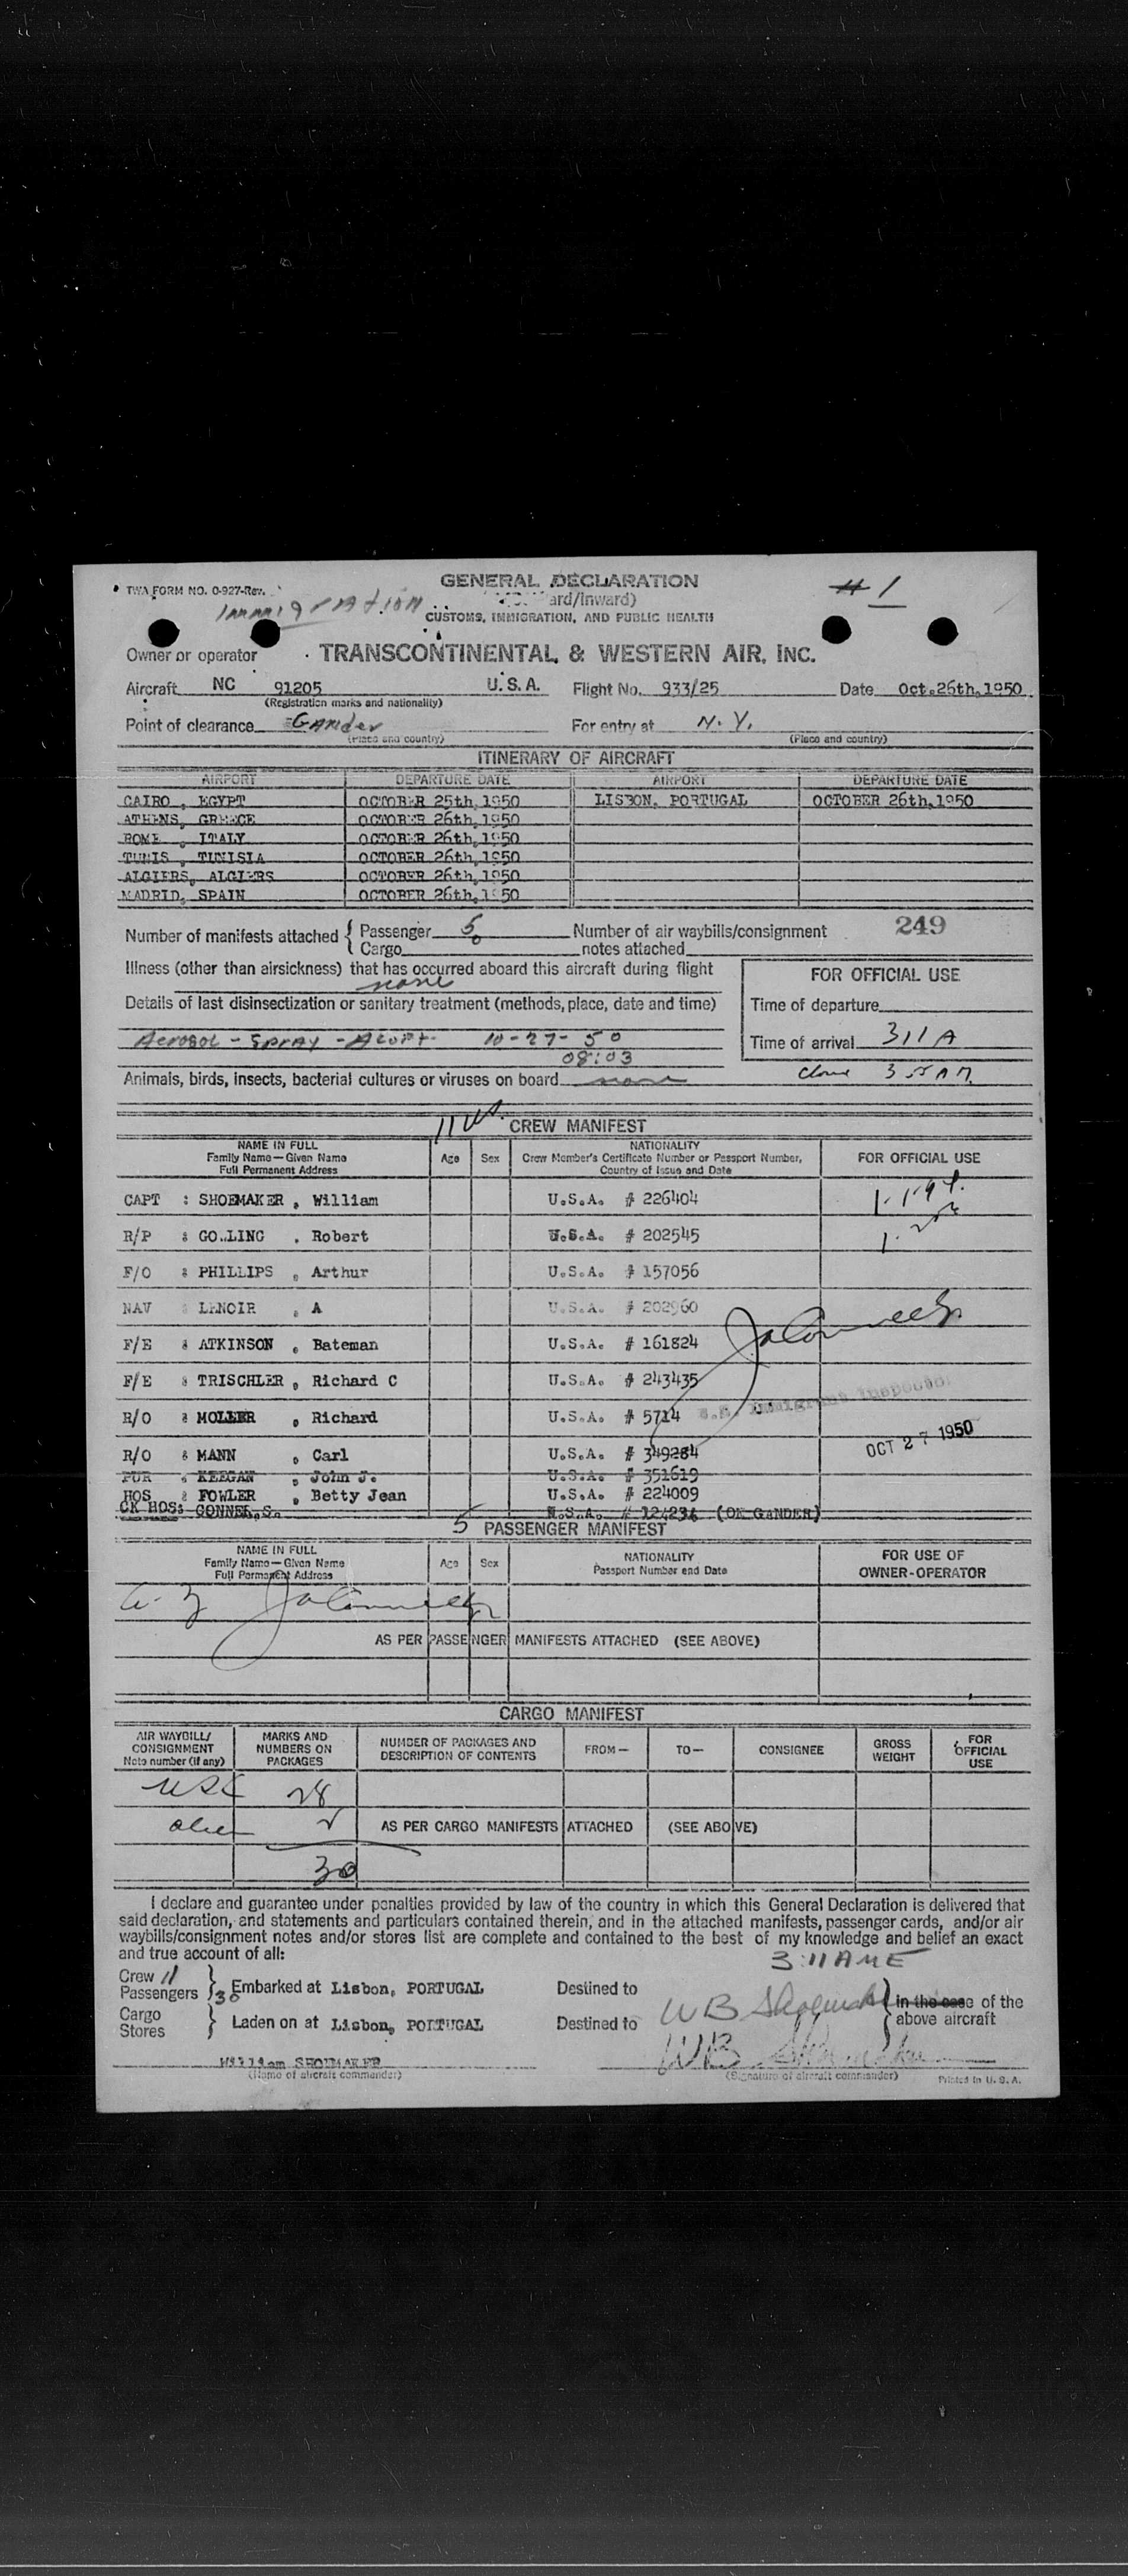 TWA FORM NO. O-927-Rev.
GENERAL DECLARATION
# 1
Immigration
ard/Inward)
CUSTOMS, IMMIGRATION, AND PUBLIC HEALTH
Owner or operator TRANSCONTINENTAL & WESTERN AIR, INC.
Aircraft NC 91205 U.S.A. Flight No. 933/25 Date Oct.26th,1950
(Registration marks and nationality)
Point of clearance Gander For entry at N.Y.
(Place and country) (Place and country)
ITINERARY OF AIRCRAFT
AIRPORT DEPARTURE DATE AIRPORT DEPARTURE DATE
CAIRO , EGYPT OCTOBER 25th,1950 LISBON, PORTUGAL OCTOBER 26th,1950
ATHENS, GREECE OCTOBER 26th,1950
ROME , ITALY OCTOBER 26th,1950
TUNIS , TUNISIA OCTOBER 26th,1950
ALGIERS, ALGIERS OCTOBER 26th,1950
MADRID, SPAIN OCTOBER 26th,1950
Number of manifests attached { Passenger 5 Number of air waybills/consignment 249
Cargo 0 notes attached
Illness (other than airsickness) that has occurred aboard this aircraft during flight
none
FOR OFFICIAL USE
Details of last disinsectization or sanitary treatment (methods, place, date and time)
Time of departure
Aerosol - Spray - 10-27-50
08:03
Time of arrival 311 A
Animals, birds, insects, bacterial cultures or viruses on board none
CREW MANIFEST
NAME IN FULL
Family Name—Given Name
Full Permanent Address
Age Sex
NATIONALITY
Crew Member's Certificate Number or Passport Number,
Country of Issue and Date
FOR OFFICIAL USE
CAPT : SHOEMAKER , William U.S.A. # 226404
R/P : GO..LING , Robert U.S.A. # 202545
F/O : PHILLIPS , Arthur U.S.A. # 157056
NAV : LENOIR , A U.S.A. # 202960
F/E : ATKINSON , Bateman U.S.A. # 161824
F/E : TRISCHLER , Richard C U.S.A. # 243435
R/O : MOLLER , Richard U.S.A. # 5714
U.S. Immigrant Inspector
OCT 27 1950
R/O : MANN , Carl U.S.A. # 349284
PUR : KEEGAN , John J. U.S.A. # 351619
HOS : FOWLER , Betty Jean U.S.A. # 224009
CK HOS: CONNEL,S. U.S.A. # 124234 (OK GANDER)
5 PASSENGER MANIFEST
NAME IN FULL
Family Name—Given Name
Full Permanent Address
Age Sex
NATIONALITY
Passport Number and Date
FOR USE OF
OWNER-OPERATOR
AS PER PASSENGER MANIFESTS ATTACHED (SEE ABOVE)
CARGO MANIFEST
AIR WAYBILL/
CONSIGNMENT
Note number (if any)
MARKS AND
NUMBERS ON
PACKAGES
NUMBER OF PACKAGES AND
DESCRIPTION OF CONTENTS
FROM—
TO—
CONSIGNEE
GROSS
WEIGHT
FOR
OFFICIAL
USE
USC 28
alien 2 AS PER CARGO MANIFESTS ATTACHED (SEE ABOVE)
30
I declare and guarantee under penalties provided by law of the country in which this General Declaration is delivered that
said declaration, and statements and particulars contained therein, and in the attached manifests, passenger cards, and/or air
waybills/consignment notes and/or stores list are complete and contained to the best of my knowledge and belief an exact
and true account of all:
3:11 AME
Crew 11
Passengers 30 } Embarked at Lisbon, PORTUGAL Destined to
WB Shoemaker } in the case of the
above aircraft
Cargo
Stores } Laden on at Lisbon, PORTUGAL Destined to
William SHOEMAKER WB Shoemaker
(Name of aircraft commander) (Signature of aircraft commander) Printed in U.S.A.